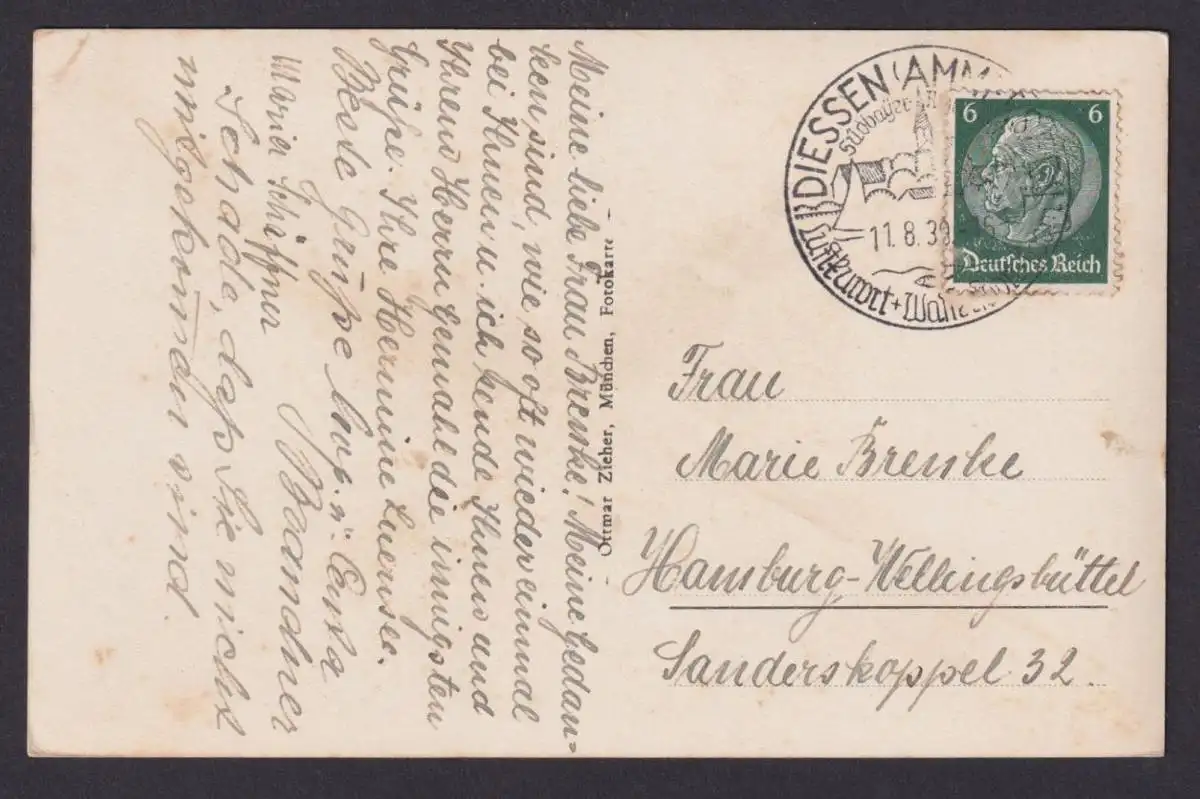 Meine liebe Frau Brenke! Meine Gedan-
ken sind, wie so oft wieder einmal
bei Ihnen u. ich sende Ihnen und
Ihrem Herrn Gemahl die innigsten
Grüße. Ihre Hermine Luersee.
Beste Grüße Insp. u. Erna
Baandner
Marier Schiffner
Schade, daß Sie nicht
mitgekommen sind.
Ottmar Zieher, München, Fotokarte
DIESSEN (AMM
Südbayer
11.8.39
Luftkurort +
6 6
Deutsches Reich
Frau
Marie Brenke
Hamburg-Wellingsbüttel
Sanderskoppel 32.